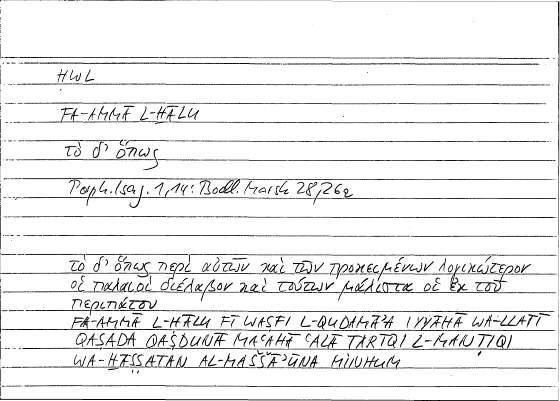 HWL
FA-AMMĀ L-ḤĀLU
τὸ δ' ὅπως
Porph. Isag. 1,14: Bodl. Marsh 28,26a
τὸ δ' ὅπως περὶ αὐτῶν καὶ τῶν προκειμένων λογικώτερον
οἱ παλαιοὶ διέλαβον καὶ τούτων μάλιστα οἱ ἐκ τοῦ
περιπάτου
FA-AMMĀ L-ḤĀLU FĪ WAṢFI L-QUDAMĀʾA IYYĀHĀ WA-LLATĪ
QAṢADA QAṢDUNĀ MAʿAHĀ ʿALĀ ṬARĪQI L-MANṬIQI
WA-ḪĀṢṢATAN AL-MAŠŠĀʾŪNA MINHUM